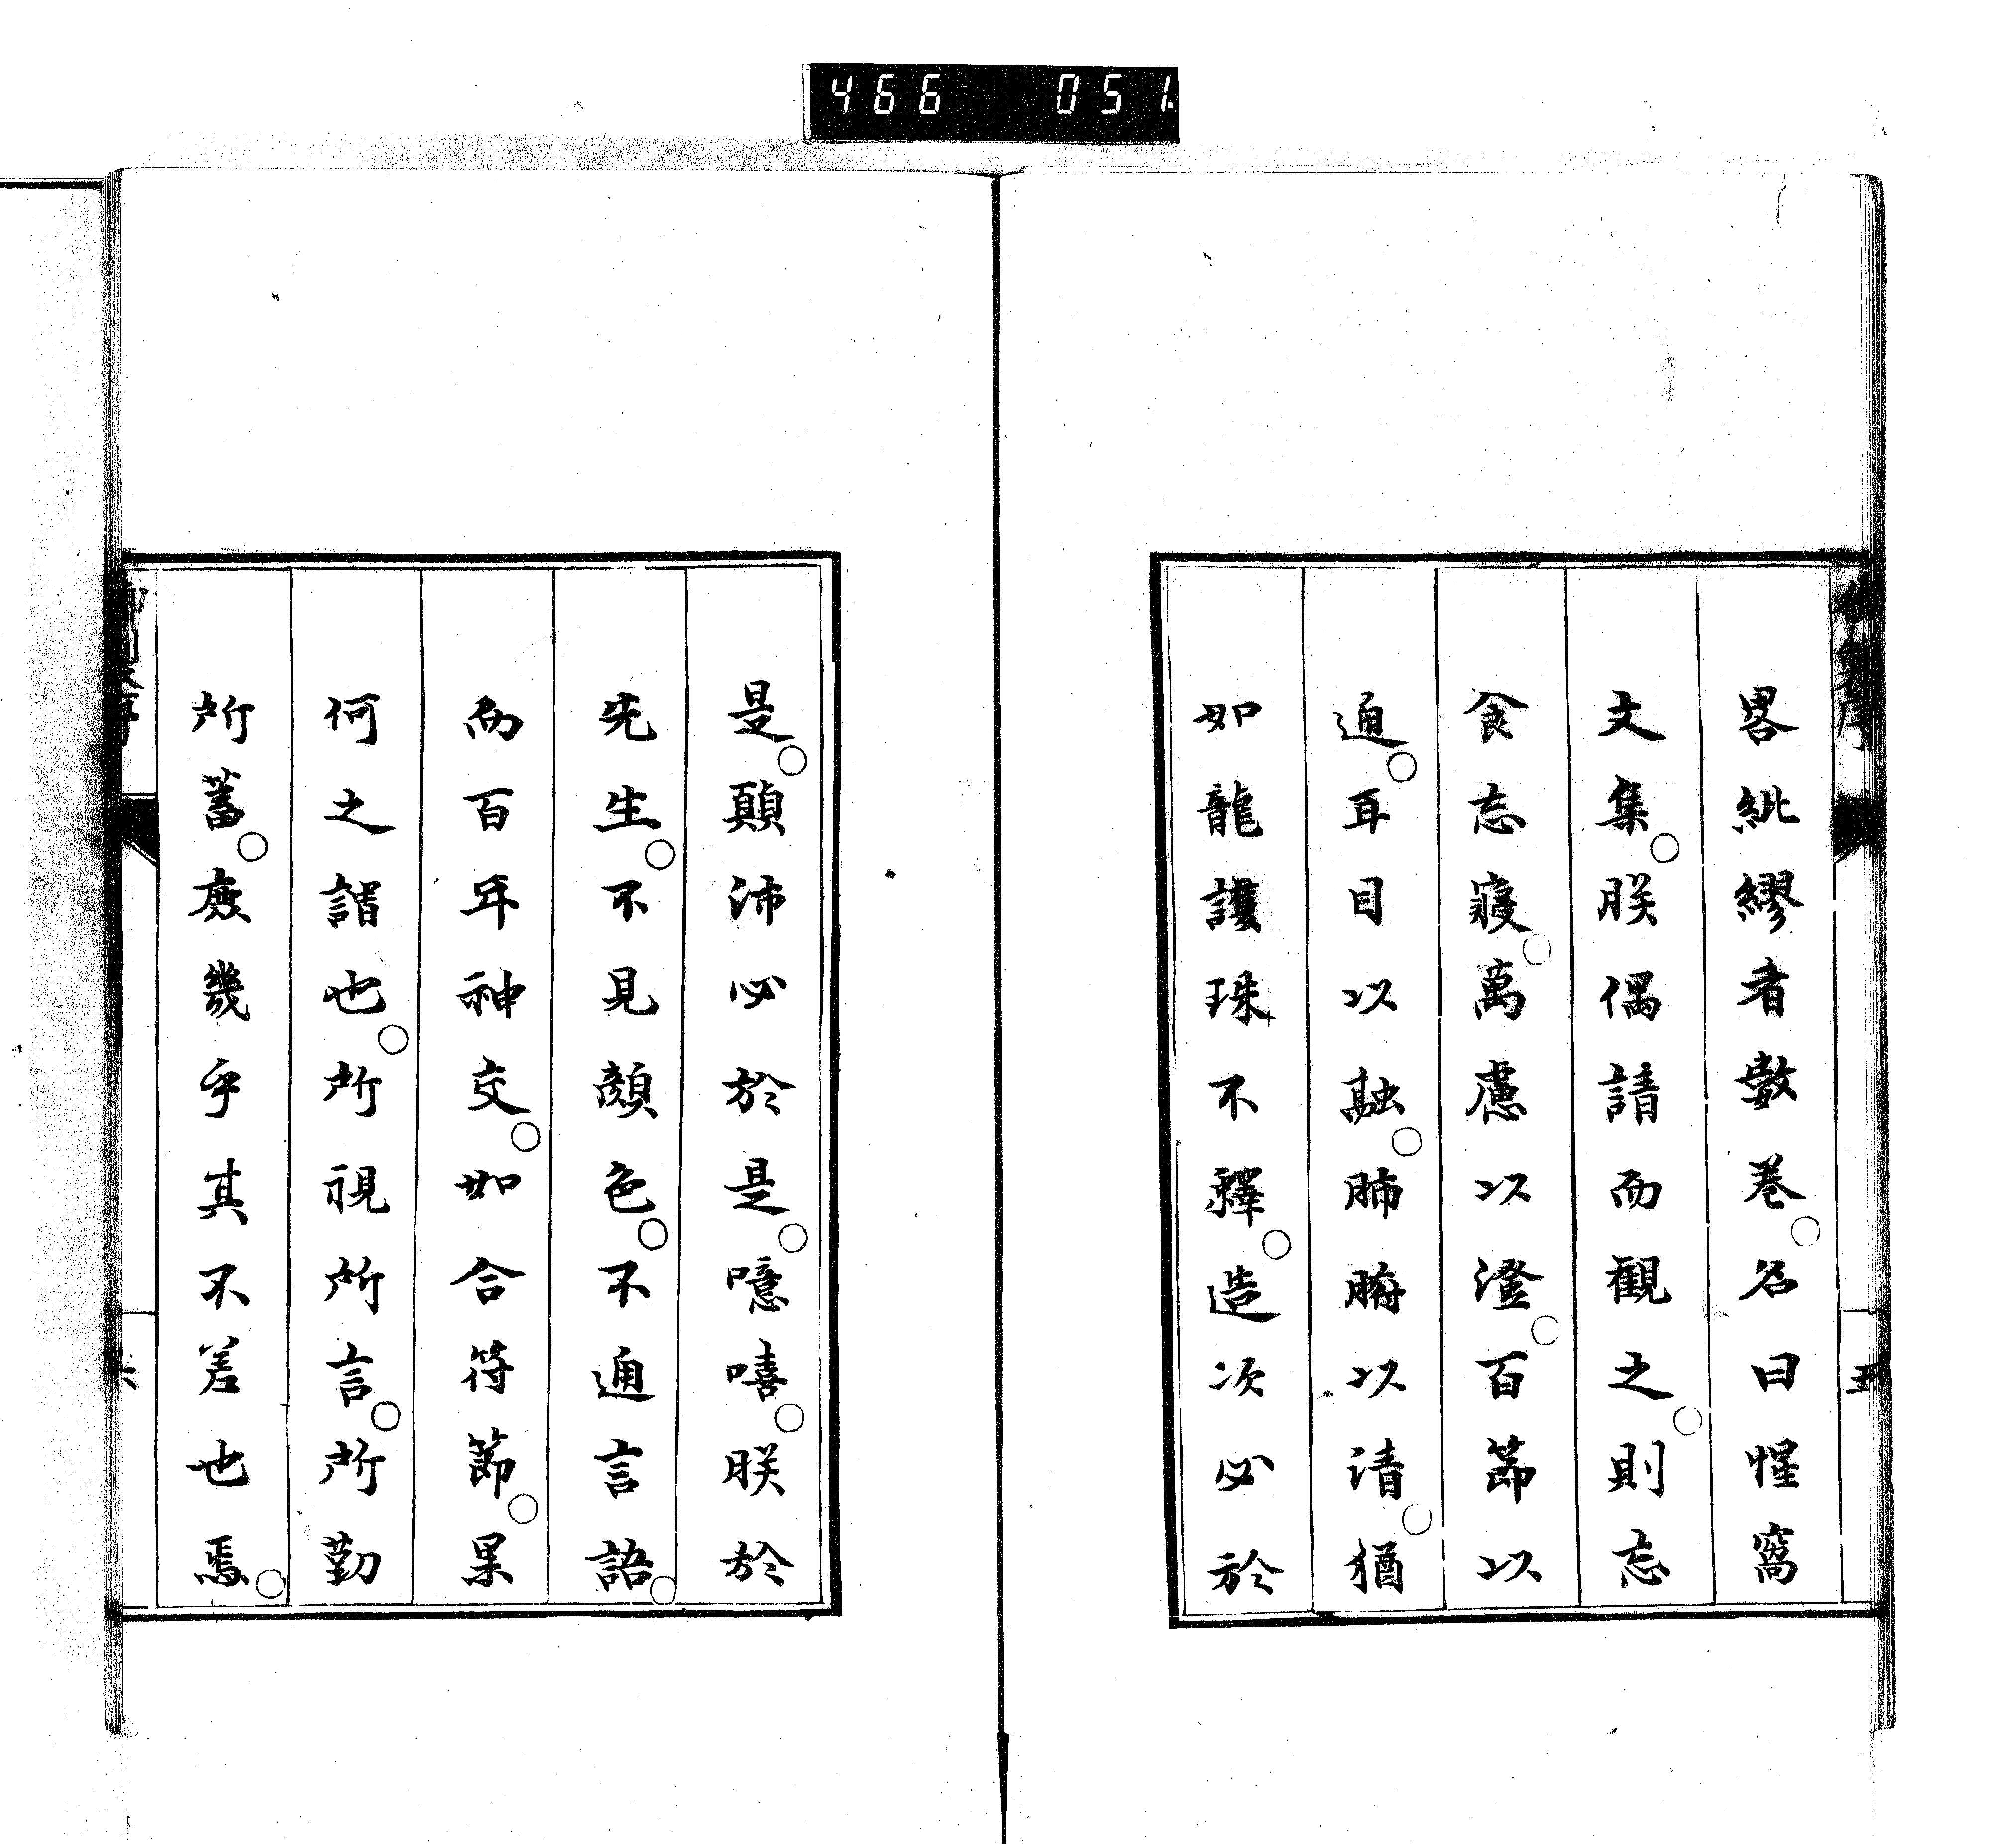 466 051
畧紕繆者數卷○名曰惺窩
文集○朕偶請而觀之○則忘
食忘寢○萬慮以澄○百節以
通○耳目以融○肺腑以清○猶
如龍護珠不釋○造次必於
是○顛沛必於是○噫嘻○朕於
先生○不見顏色○不通言語○
而百年神交○如合符節○果
何之謂也○所視所言○所勤
所蓄○庶幾乎其不差也焉○